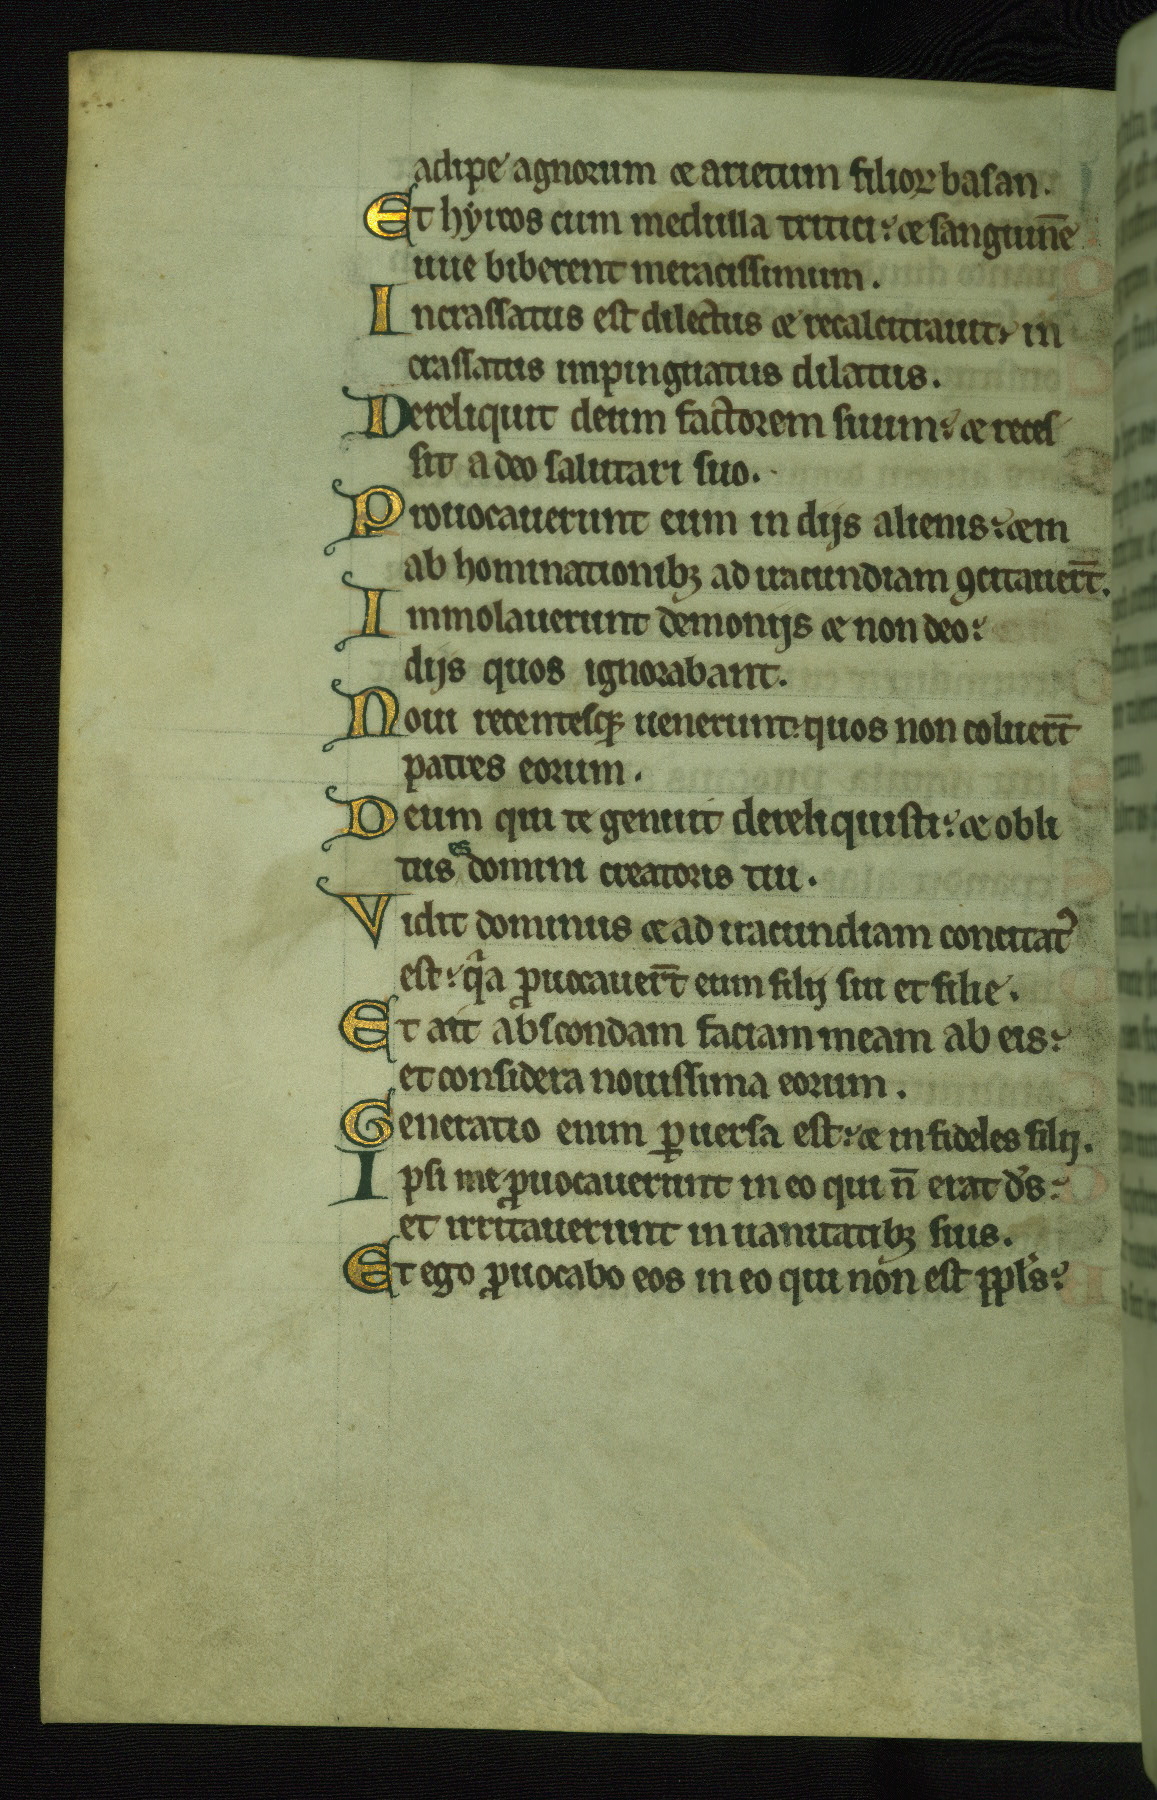 adipe agnorum & arietum filioꝝ basan.
Et hyrcos cum medulla tritici: & sanguinē
uue biberent meracissimum.
Incrassatus est dilectus & recalcitrauit, in
crassatus impinguatus dilatus.
Dereliquit deum factorem suum: & reces
sit a deo salutari suo.
Prouocauerunt eum in dijs alienis: & in
ab hominationibꝫ ad iracundiam ꝯcitauer̄t.
Immolauerunt demonijs & non deo:
dijs quos ignorabant.
Noui recentesqꝫ uenerunt: quos non coluer̄t
patres eorum.
Deum qui te genuit dereliquisti: & obli
tus es domini creatoris tui.
Vidit dominus & ad iracundiam concitatꝰ
est: qͥa ꝓuocauer̄t eum filij sui et filie.
Et ait abscondam faciam meam ab eis:
et considera nouissima eorum.
Generatio enim ꝑuersa est: & infideles filij.
Ipsi me ꝓuocauerunt in eo qui n̄ erat d̄s:
et irritauerunt in uanitatibꝫ suis.
Et ego ꝓuocabo eos in eo qui non est ppl̄s: